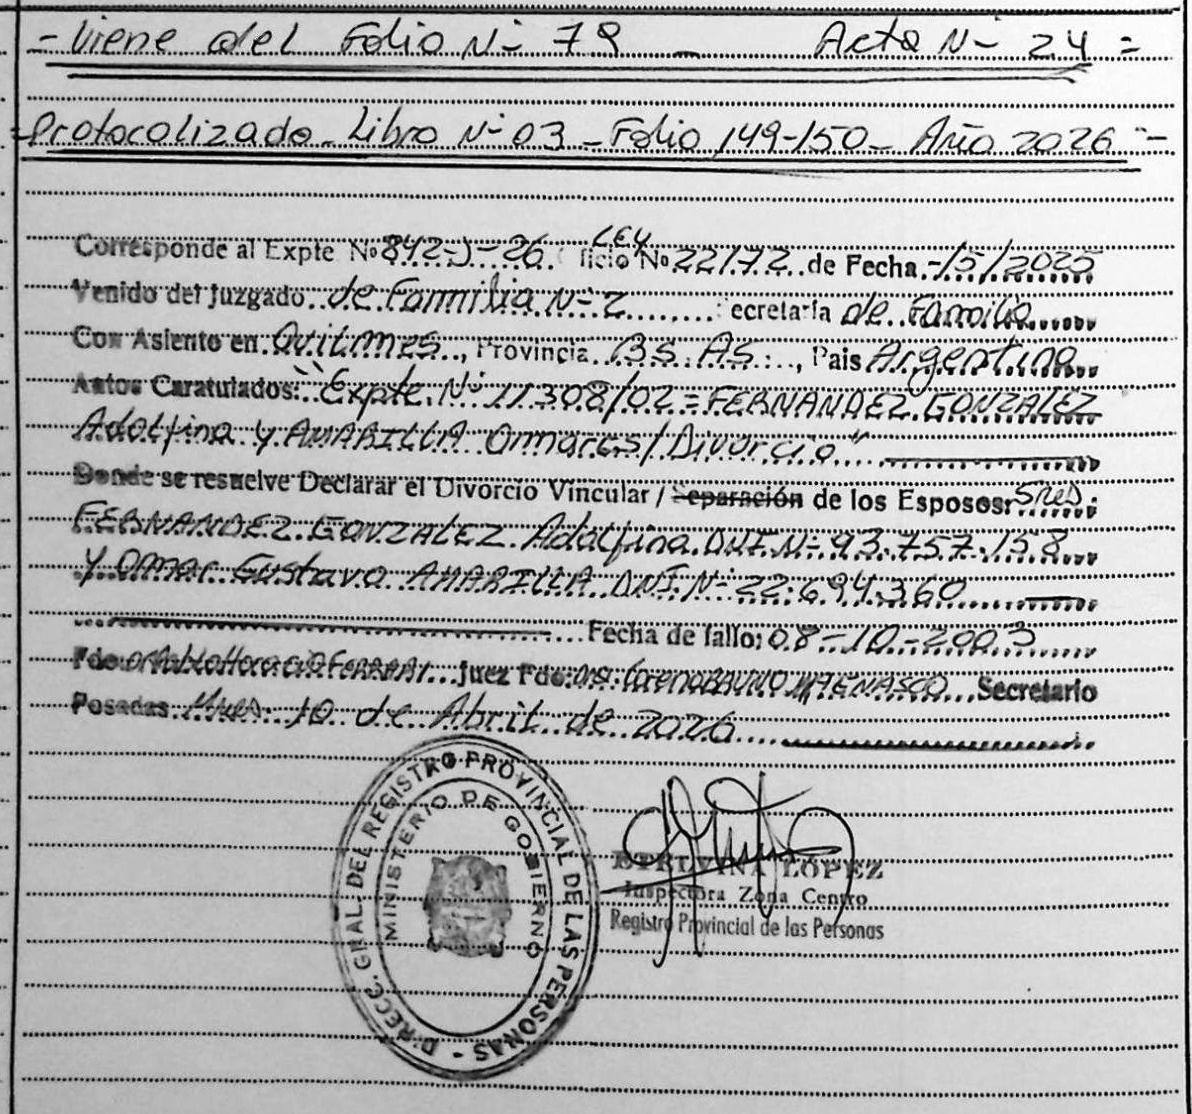 - Viene del Folio N- 79 - Acta N- 24 =
= Protocolizado - Libro N- 03 - Folio 149-150 - Año 2026 -
Corresponde al Expte Nº 842-J-26. Ley
ficio Nº 22172 de Fecha -/5/2025
Venido del Juzgado de Familia N- 2 ecretaria de Familia
Con Asiento en Quilmes, Provincia Bs. As., Pais Argentina
Autos Caratulados: "Expte. Nº 11308/02 = FERNANDEZ GONZALEZ
Adolfina y AMARILLA Omar s/Divorcio"
Donde se resuelve Declarar el Divorcio Vincular / Separación de los Esposos: Sres.
FERNANDEZ GONZALEZ Adolfina DNI N- 93.757.158
Y Omar Gustavo AMARILLA DNI N- 22.694.360
Fecha de fallo: 08-10-2003
Fdo: Pablo Horacio FERRARI Juez Fdo: BRUNO MAGNASCO Secretario
Posadas Mnes. 10 de Abril de 2026
DIRECC. GRAL. DEL REGISTRO PROVINCIAL DE LAS PERSONAS -
MINISTERIO DE GOBIERNO
ETELVINA LÓPEZ
Inspectora Zona Centro
Registro Provincial de las Personas